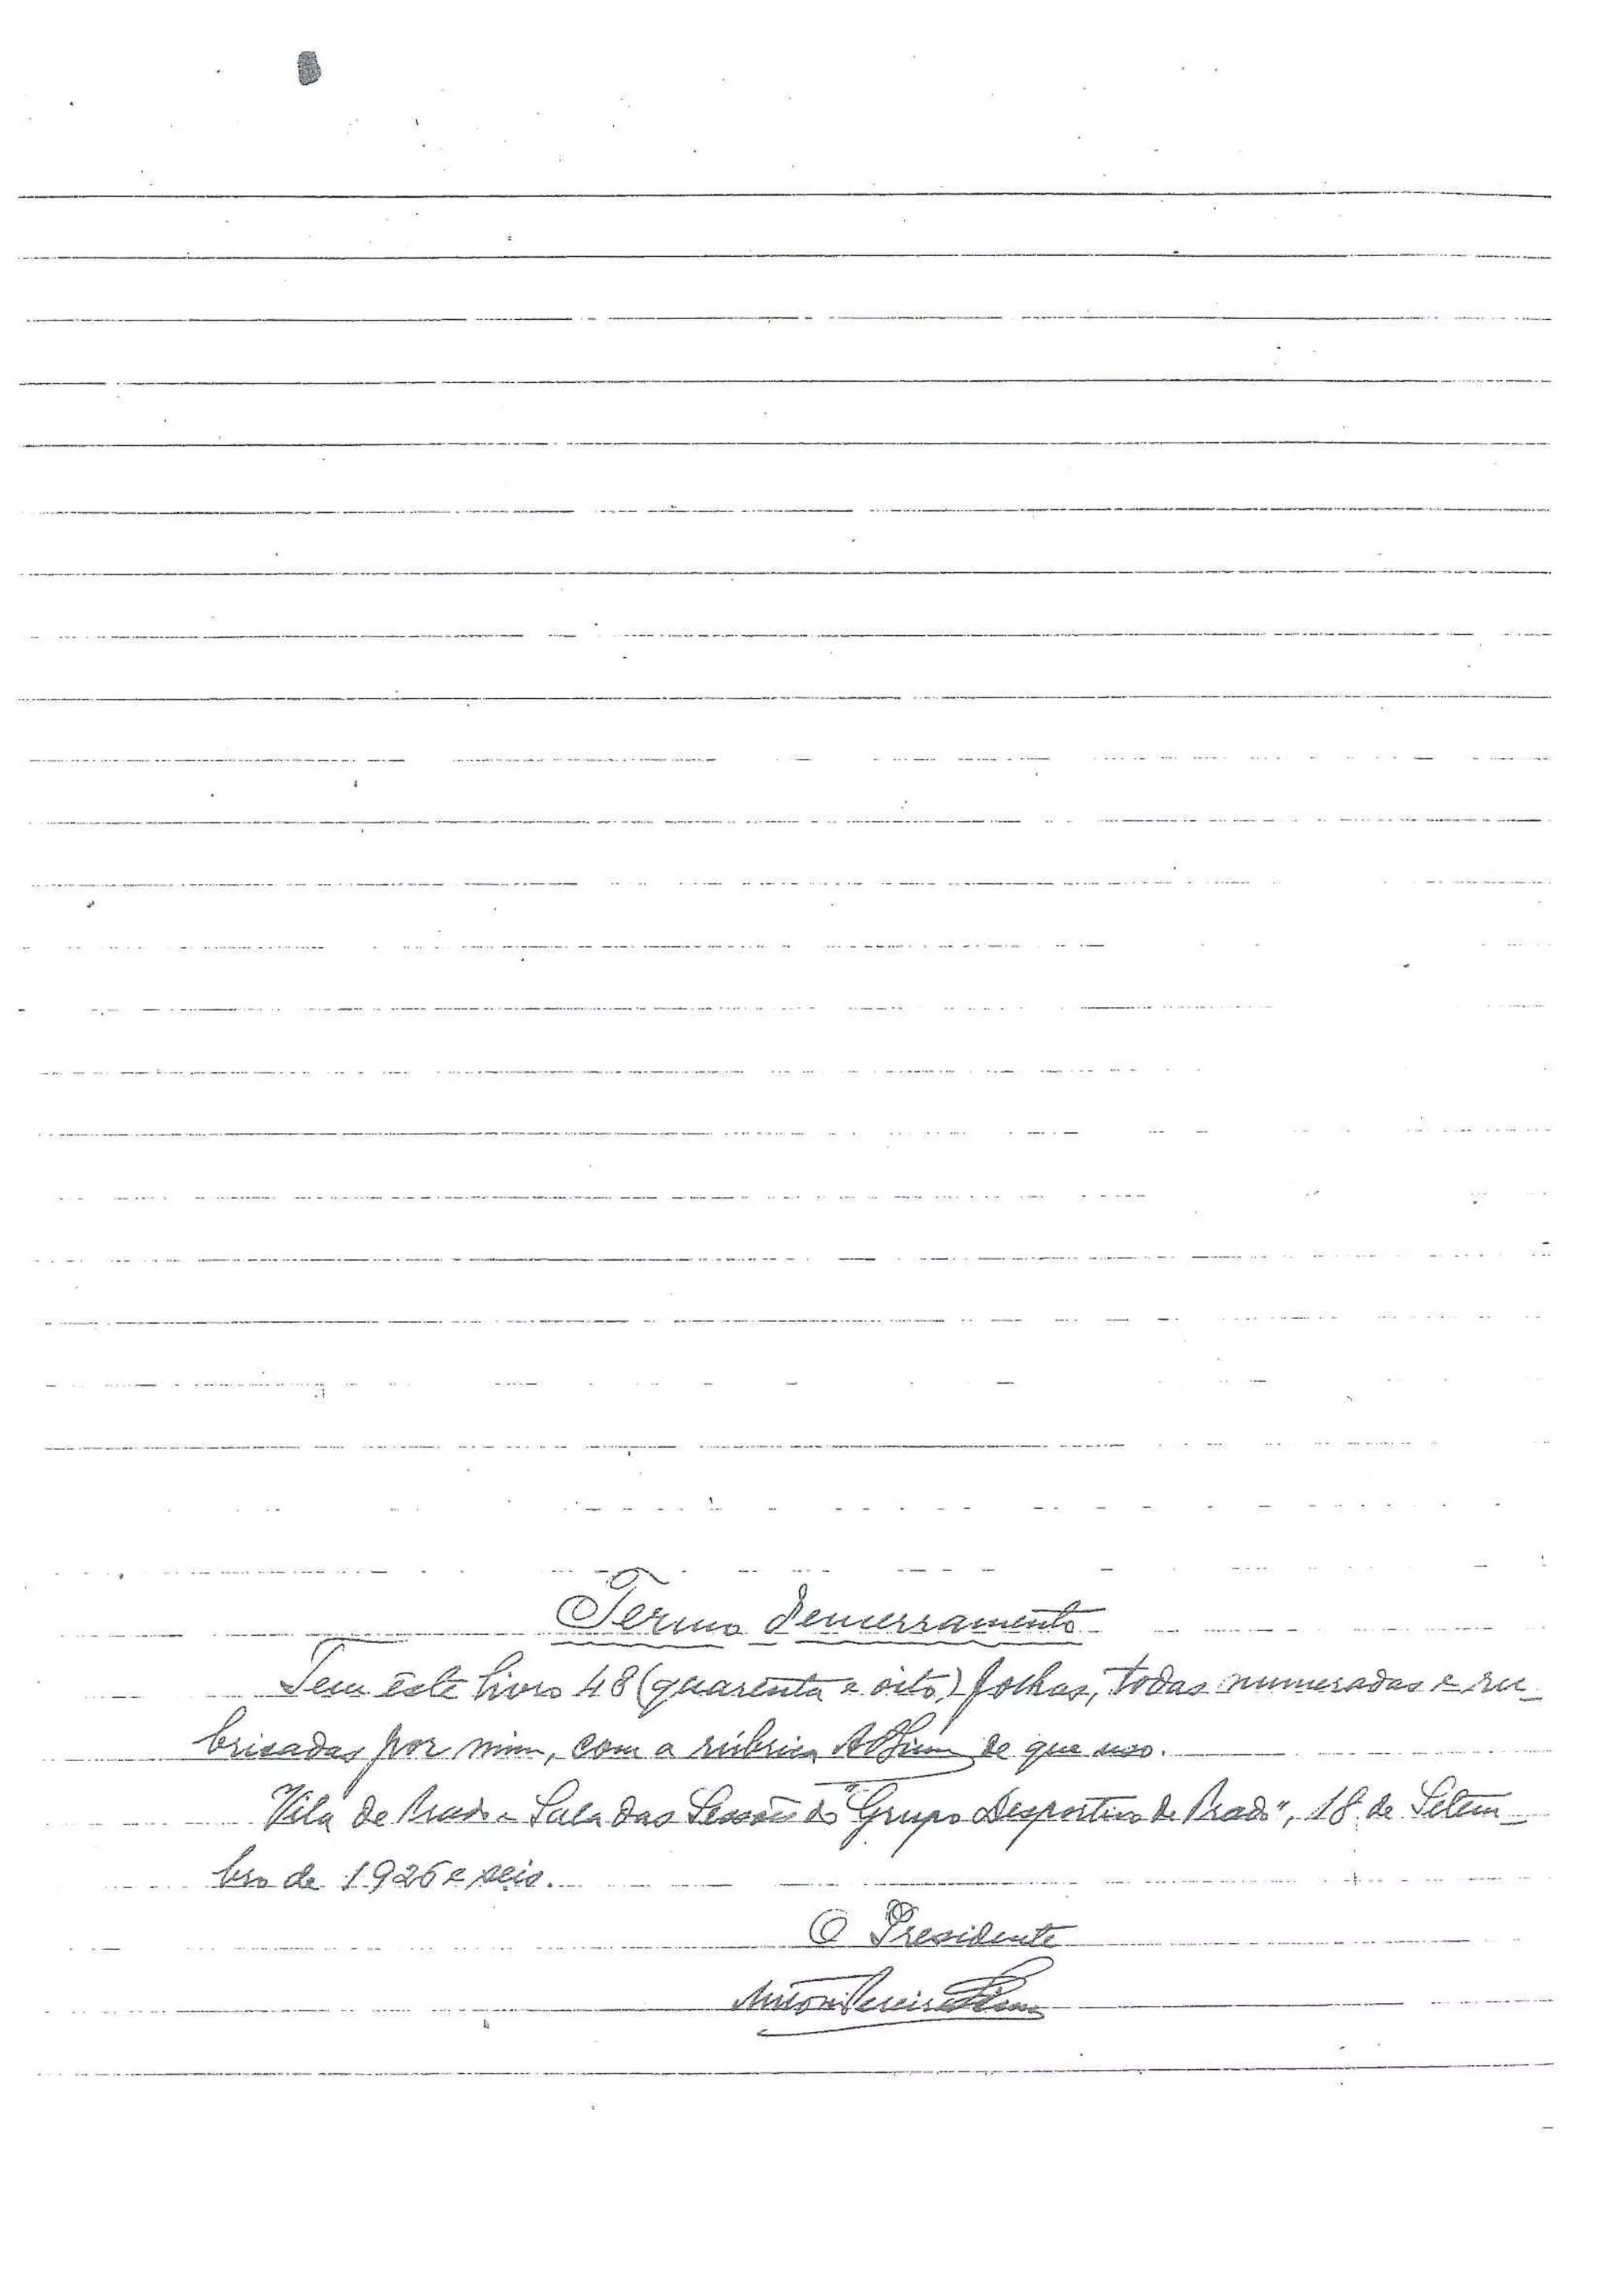 Termo d'encerramento
Tem êste livro 48 (quarenta e oito) folhas, todas numeradas e ru-
bricadas por mim, com a rúbrica de que uso.
Vila de Prado - Sala das Sessões do "Grupo Desportivo de Prado", 18 de Setem-
bro de 1926 e seis.
O Presidente
António Pereira